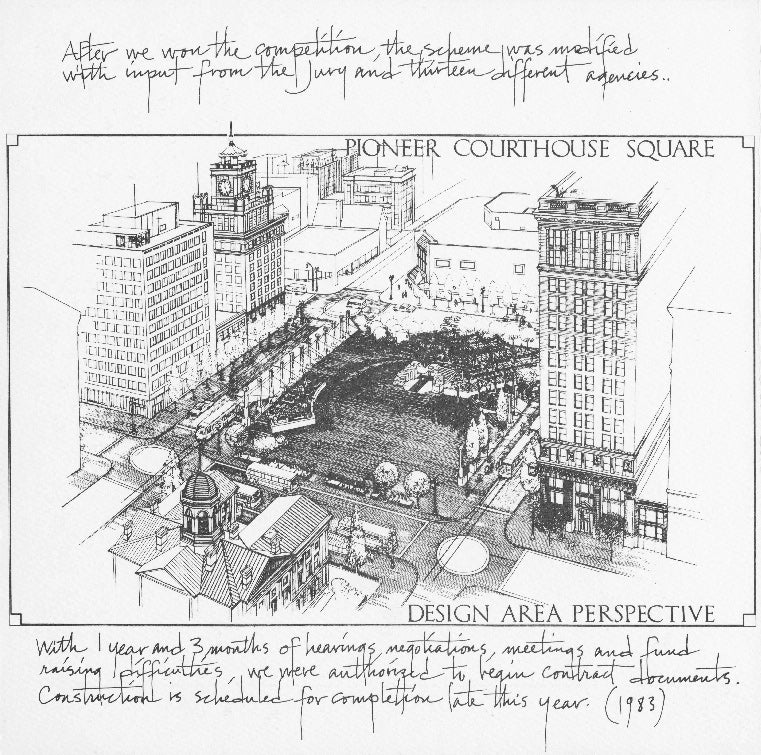 After we won the competition, the scheme was modified
with input from the Jury and thirteen different agencies..
PIONEER COURTHOUSE SQUARE
DESIGN AREA PERSPECTIVE
With 1 year and 3 months of hearings, negotiations, meetings and fund
raising difficulties, we were authorized to begin contract documents.
Construction is scheduled for completion late this year. (1983)